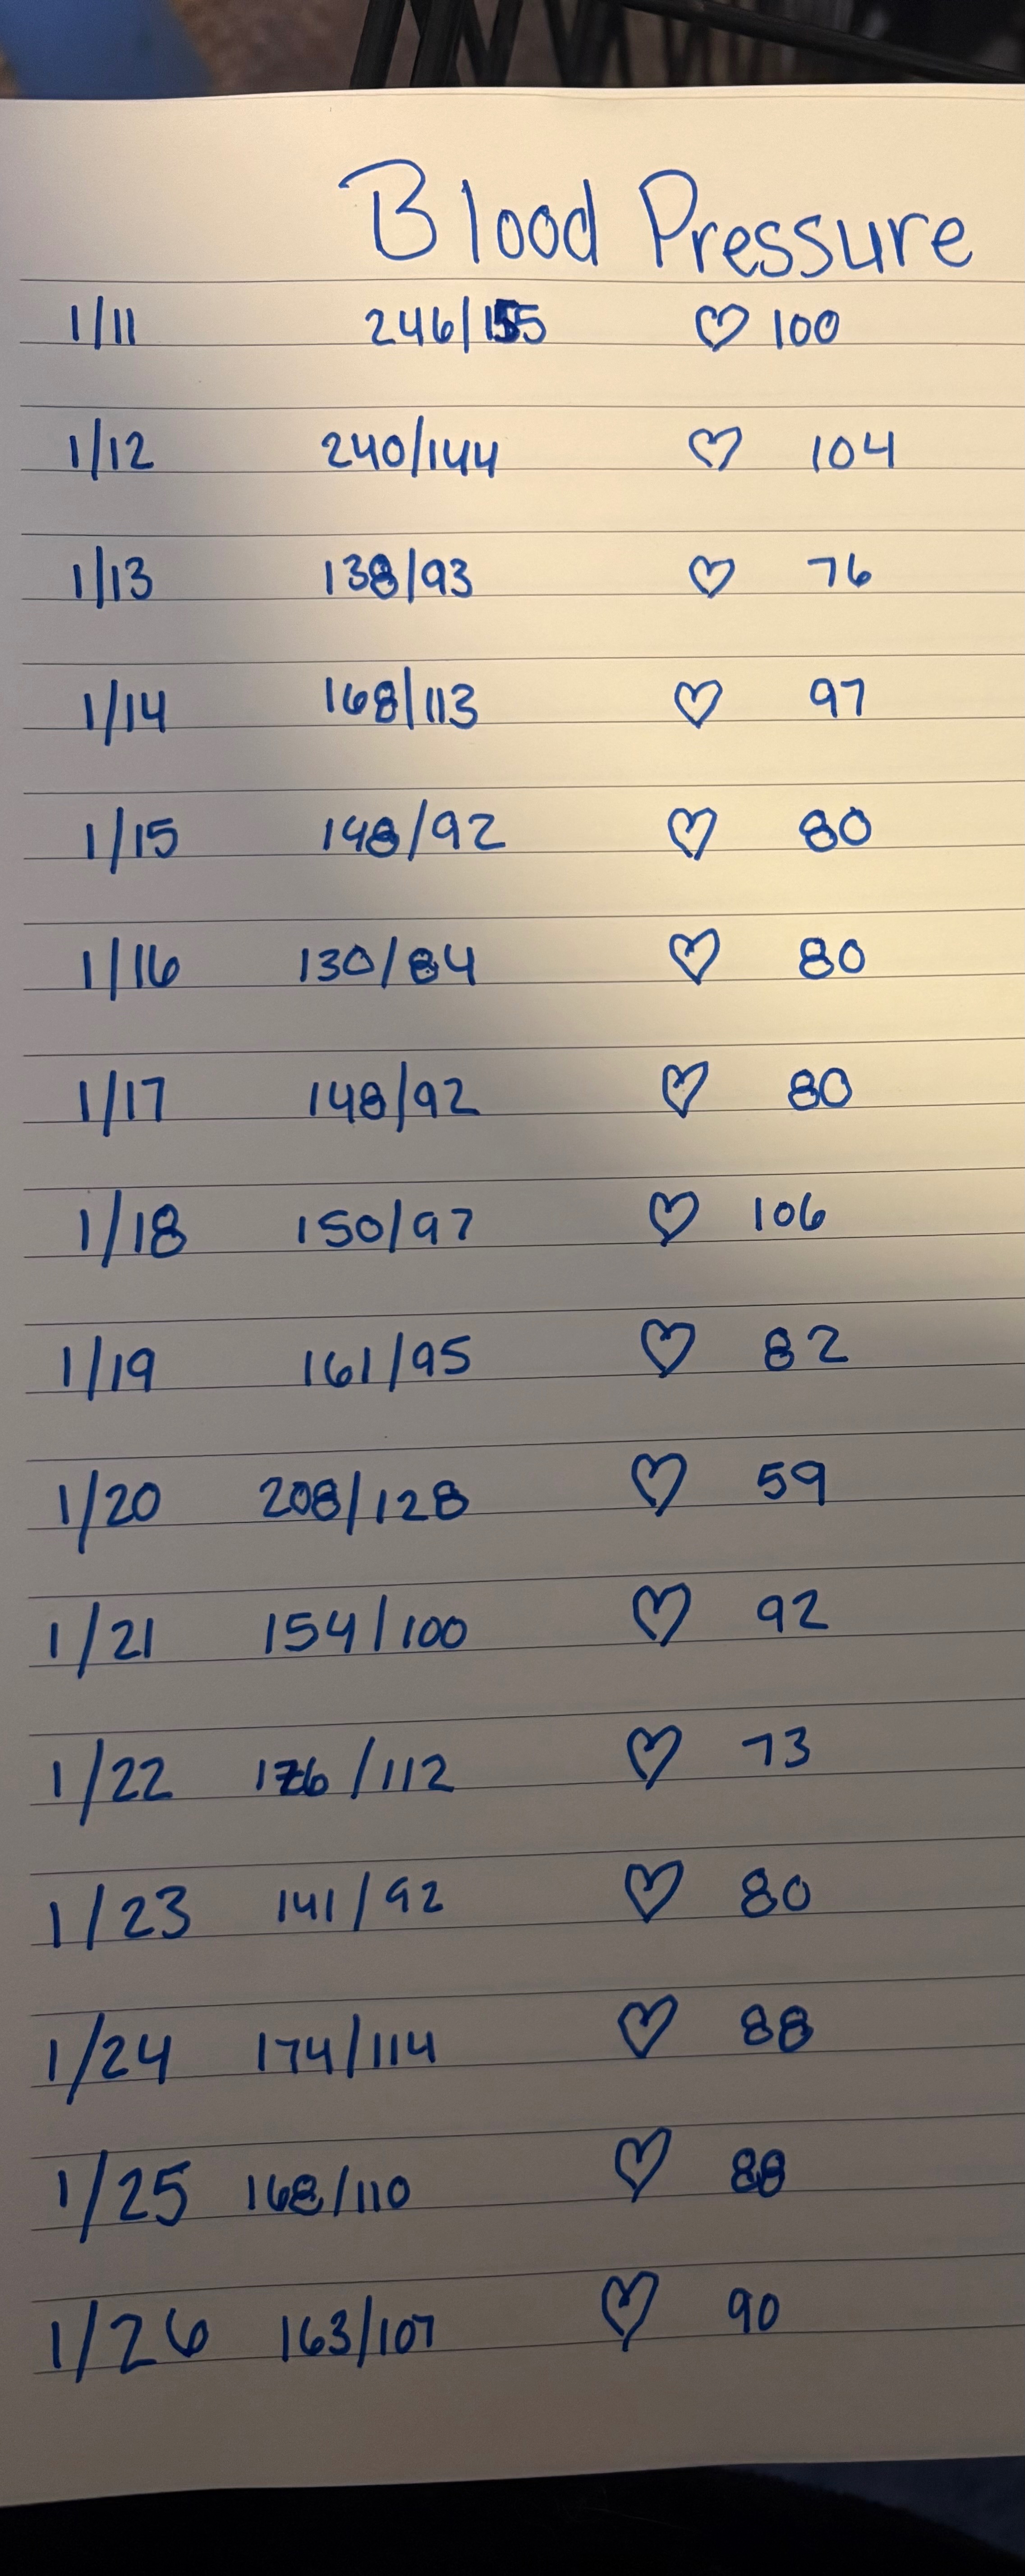 Blood Pressure
1/11 246/155 ♡ 100
1/12 240/144 ♡ 104
1/13 138/93 ♡ 76
1/14 168/113 ♡ 97
1/15 148/92 ♡ 80
1/16 130/84 ♡ 80
1/17 148/92 ♡ 80
1/18 150/97 ♡ 106
1/19 161/95 ♡ 82
1/20 208/128 ♡ 59
1/21 154/100 ♡ 92
1/22 176/112 ♡ 73
1/23 141/92 ♡ 80
1/24 174/114 ♡ 88
1/25 168/110 ♡ 88
1/26 163/107 ♡ 90